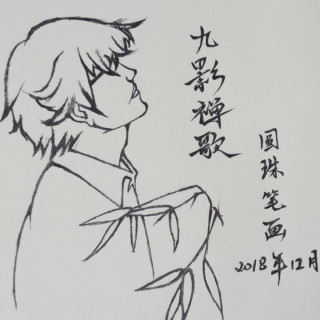 九影禅歌
圆珠笔画
2018年12月